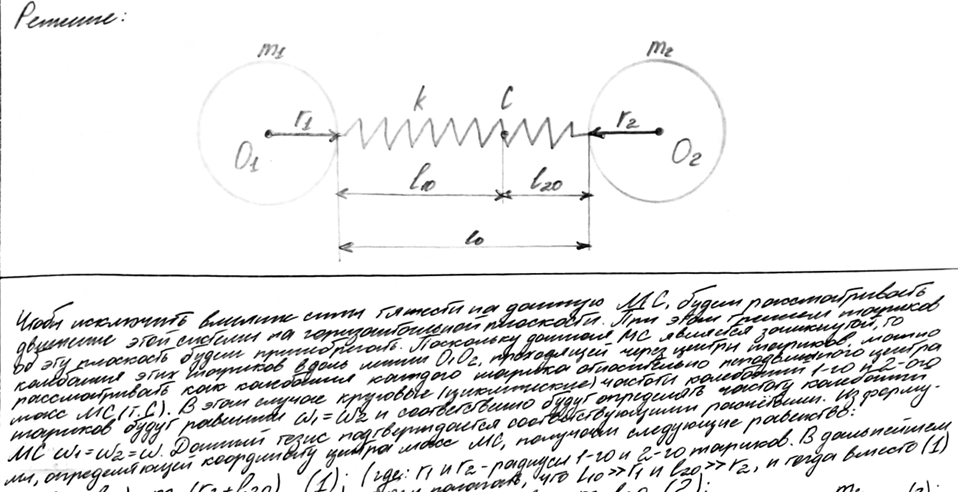 Решение:
m1 m2
k C
r1 r2
O1 O2
l10 l20
l0
Чтобы исключить влияние силы тяжести на данную МС, будем рассматривать
движение этой системы на горизонтальной плоскости. При этом трением шариков
об эту плоскость будем пренебрегать. Поскольку данная МС является замкнутой, то
колебания этих шариков вдоль линии O1O2, проходящей через центры шариков, можно
рассматривать как колебания каждого шарика относительно неподвижного центра
масс МС (т. С). В этом случае круговые (циклические) частоты колебаний 1-го и 2-ого
шариков будут равными ω1=ω2 и соответственно будут определять частоту колебаний
МС ω1=ω2=ω. Данный тезис подтверждается соответствующими расчётами. Из форму-
лы, определяющей координату центра масс МС, получаем следующие равенство:
(r2+l20) (1); (где: r1 и r2 - радиусы 1-го и 2-го шариков. В дальнейшем
полагать, что l10>>r1 и l20>>r2, и тогда вместо (1)
(2);